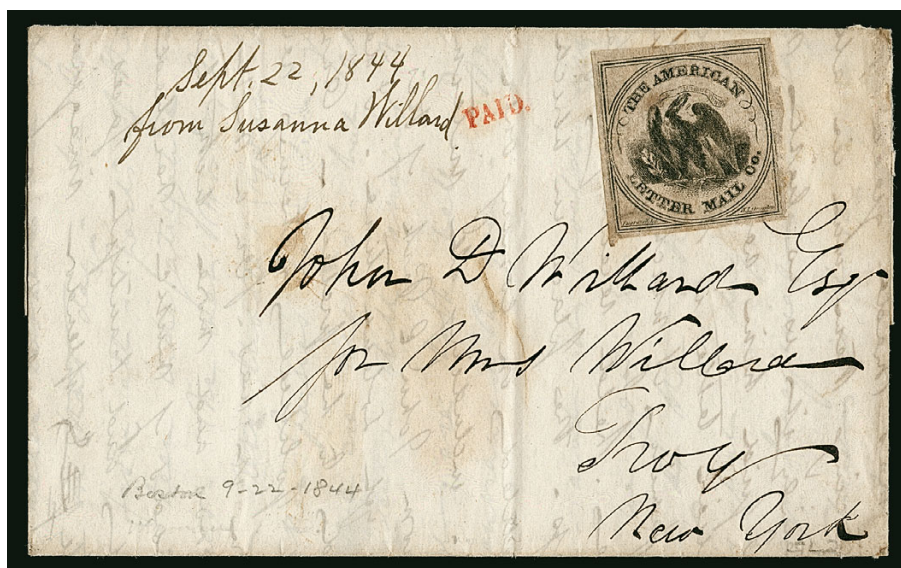 Sept. 22, 1844
from Susanna Willard
PAID.
THE AMERICAN
LETTER MAIL Co.
John D Willard Esqr
for Mrs Willard
Troy
New York
Boston 9-22-1844